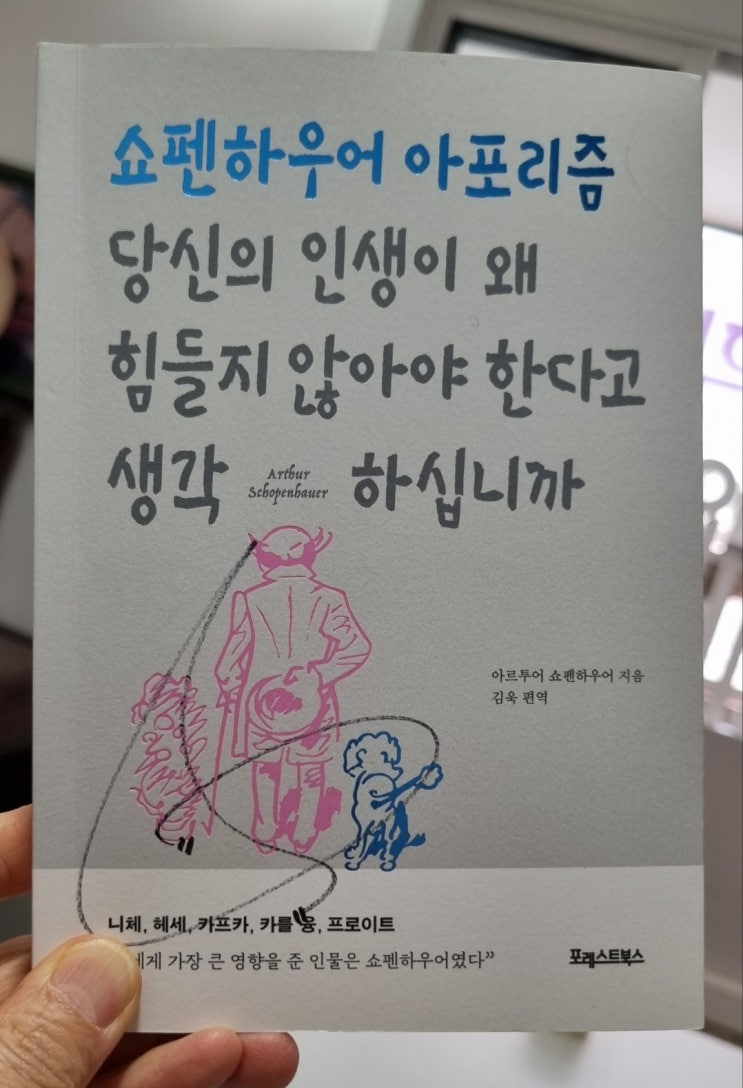 쇼펜하우어 아포리즘
당신의 인생이 왜
힘들지 않아야 한다고
생각
Arthur
Schopenhauer
하십니까
아르투어 쇼펜하우어 지음
김욱 편역
니체, 헤세, 카프카, 카를 융, 프로이트
가장 큰 영향을 준 인물은 쇼펜하우어였다”
포레스트북스